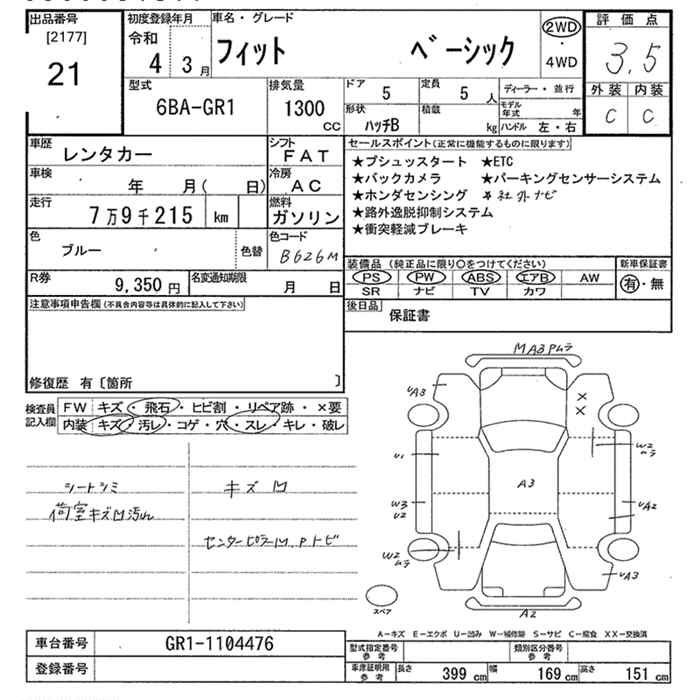 出品番号
[2177]
21
初度登録年月
令和
4 3月
車名・グレード
フィット ベーシック
2WD
・
4WD
評価点
3.5
外装 内装
C C
型式
6BA-GR1
排気量
1300
cc
ドア 5
定員 5 人
形状 ハッチB
積載 kg
ディーラー・並行
モデル年式 年
ハンドル 左・右
車歴
レンタカー
シフト
FAT
車検
年 月( 日)
冷房
AC
走行
7万9千215 km
燃料
ガソリン
色
ブルー
色替
色コード
B626M
R券
9,350 円
名変通知期限
月 日
セールスポイント(正常に機能するものに限ります)
★プシュッスタート ★ETC
★バックカメラ ★パーキングセンサーシステム
★ホンダセンシング ★社外ナビ
★路外逸脱抑制システム
★衝突軽減ブレーキ
装備品 (純正品に限り○をつけてください)
PS PW ABS エアB AW
SR ナビ TV カワ
新車保証書
有・無
後日品
保証書
注意事項申告欄(不具合内容等は具体的に記入して下さい)
修復歴 有〔箇所 〕
検査員記入欄
FW キズ・飛石・ヒビ割・リペア跡・×要
内装 キズ・汚レ・コゲ・穴・スレ・キレ・破レ
シートシミ
荷室キズ凹汚れ
キズ凹
センターピラー凹.Pトビ
MA3Pムラ
UA3
X
X
U1
W2
ムラ
A3
W3
U2
UA2
W2
ムラ
UA3
A2
スペア
A-キズ E-エクボ U-凹み W-補修跡 S-サビ C-腐食 XX-交換済
車台番号
GR1-1104476
登録番号
型式指定番号
参考
類別区分番号
参考
車庫証明用
参考
長さ 399 cm 幅 169 cm 高さ 151 cm